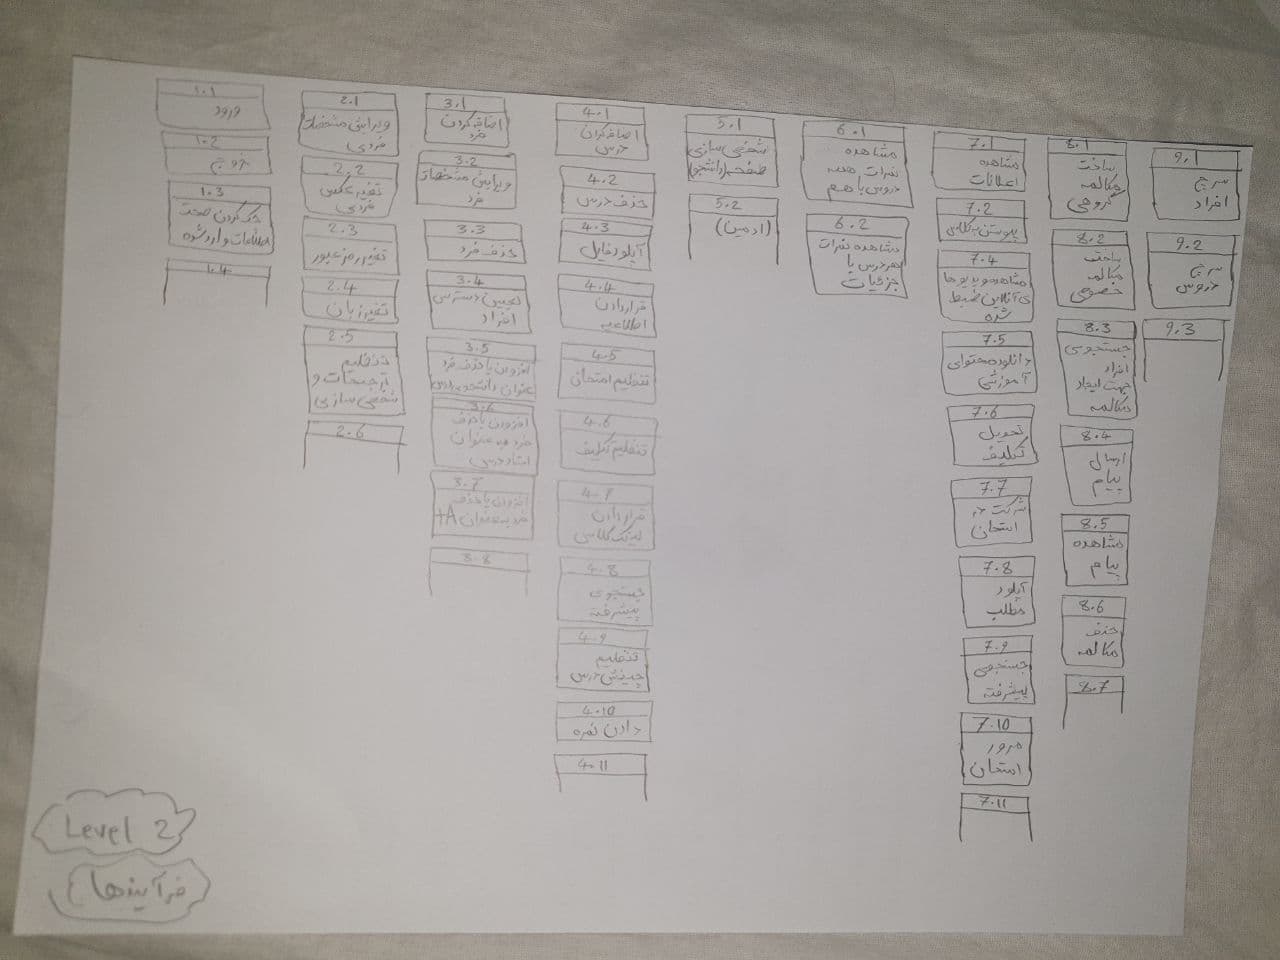 1.1
ورود
1.2
خروج
1.3
چک کردن صحت
اطلاعات وارد شده
1.4
2.1
ویرایش مشخصات
فردی
2.2
تغیر عکس
فردی
2.3
تغیر رمز عبور
2.4
تغیر زبان
2.5
تنظیم
ترجیحات و
شخصی سازی
2.6
3.1
اضافه کردن
فرد
3.2
ویرایش مشخصات
فرد
3.3
حذف فرد
3.4
تعیین دسترسی
افراد
3.5
افزودن یا حذف فرد
بعنوان دانشجو به درس
3.6
افزودن یا حذف
فرد به عنوان
استاد درس
3.7
افزودن یا حذف
فرد به عنوان TA
3.8
4.1
اضافه کردن
درس
4.2
حذف درس
4.3
آپلود فایل
4.4
قرار دادن
اطلاعیه
4.5
تنظیم امتحان
4.6
تنظیم تکلیف
4.7
قرار دادن
لینک کلاس
4.8
جستجوی
پیشرفته
4.9
تنظیم
چینش درس
4.10
دادن نمره
4.11
5.1
شخصی سازی
صفحه (دانشجو)
5.2
(ادمین)
6.1
مشاهده
نمرات همه
دروس با هم
6.2
مشاهده نمرات
هر درس با
جزئیات
7.1
مشاهده
اعلانات
7.2
پیوستن به کلاس
7.4
مشاهده ویدیوها
ی آنلاین ضبط
شده
7.5
دانلود محتوای
آموزشی
7.6
تحویل
تکلیف
7.7
شرکت در
امتحان
7.8
آپلود
مطلب
7.9
جستجوی
پیشرفته
7.10
مرور
امتحان
7.11
8.1
ساخت
مکالمه
گروهی
8.2
ساخت
مکالمه
خصوصی
8.3
جستجوی
افراد
جهت ایجاد
مکالمه
8.4
ارسال
پیام
8.5
مشاهده
پیام
8.6
حذف
مکالمه
8.7
9.1
سرچ
افراد
9.2
سرچ
دروس
9.3
Level 2
فرآیندها